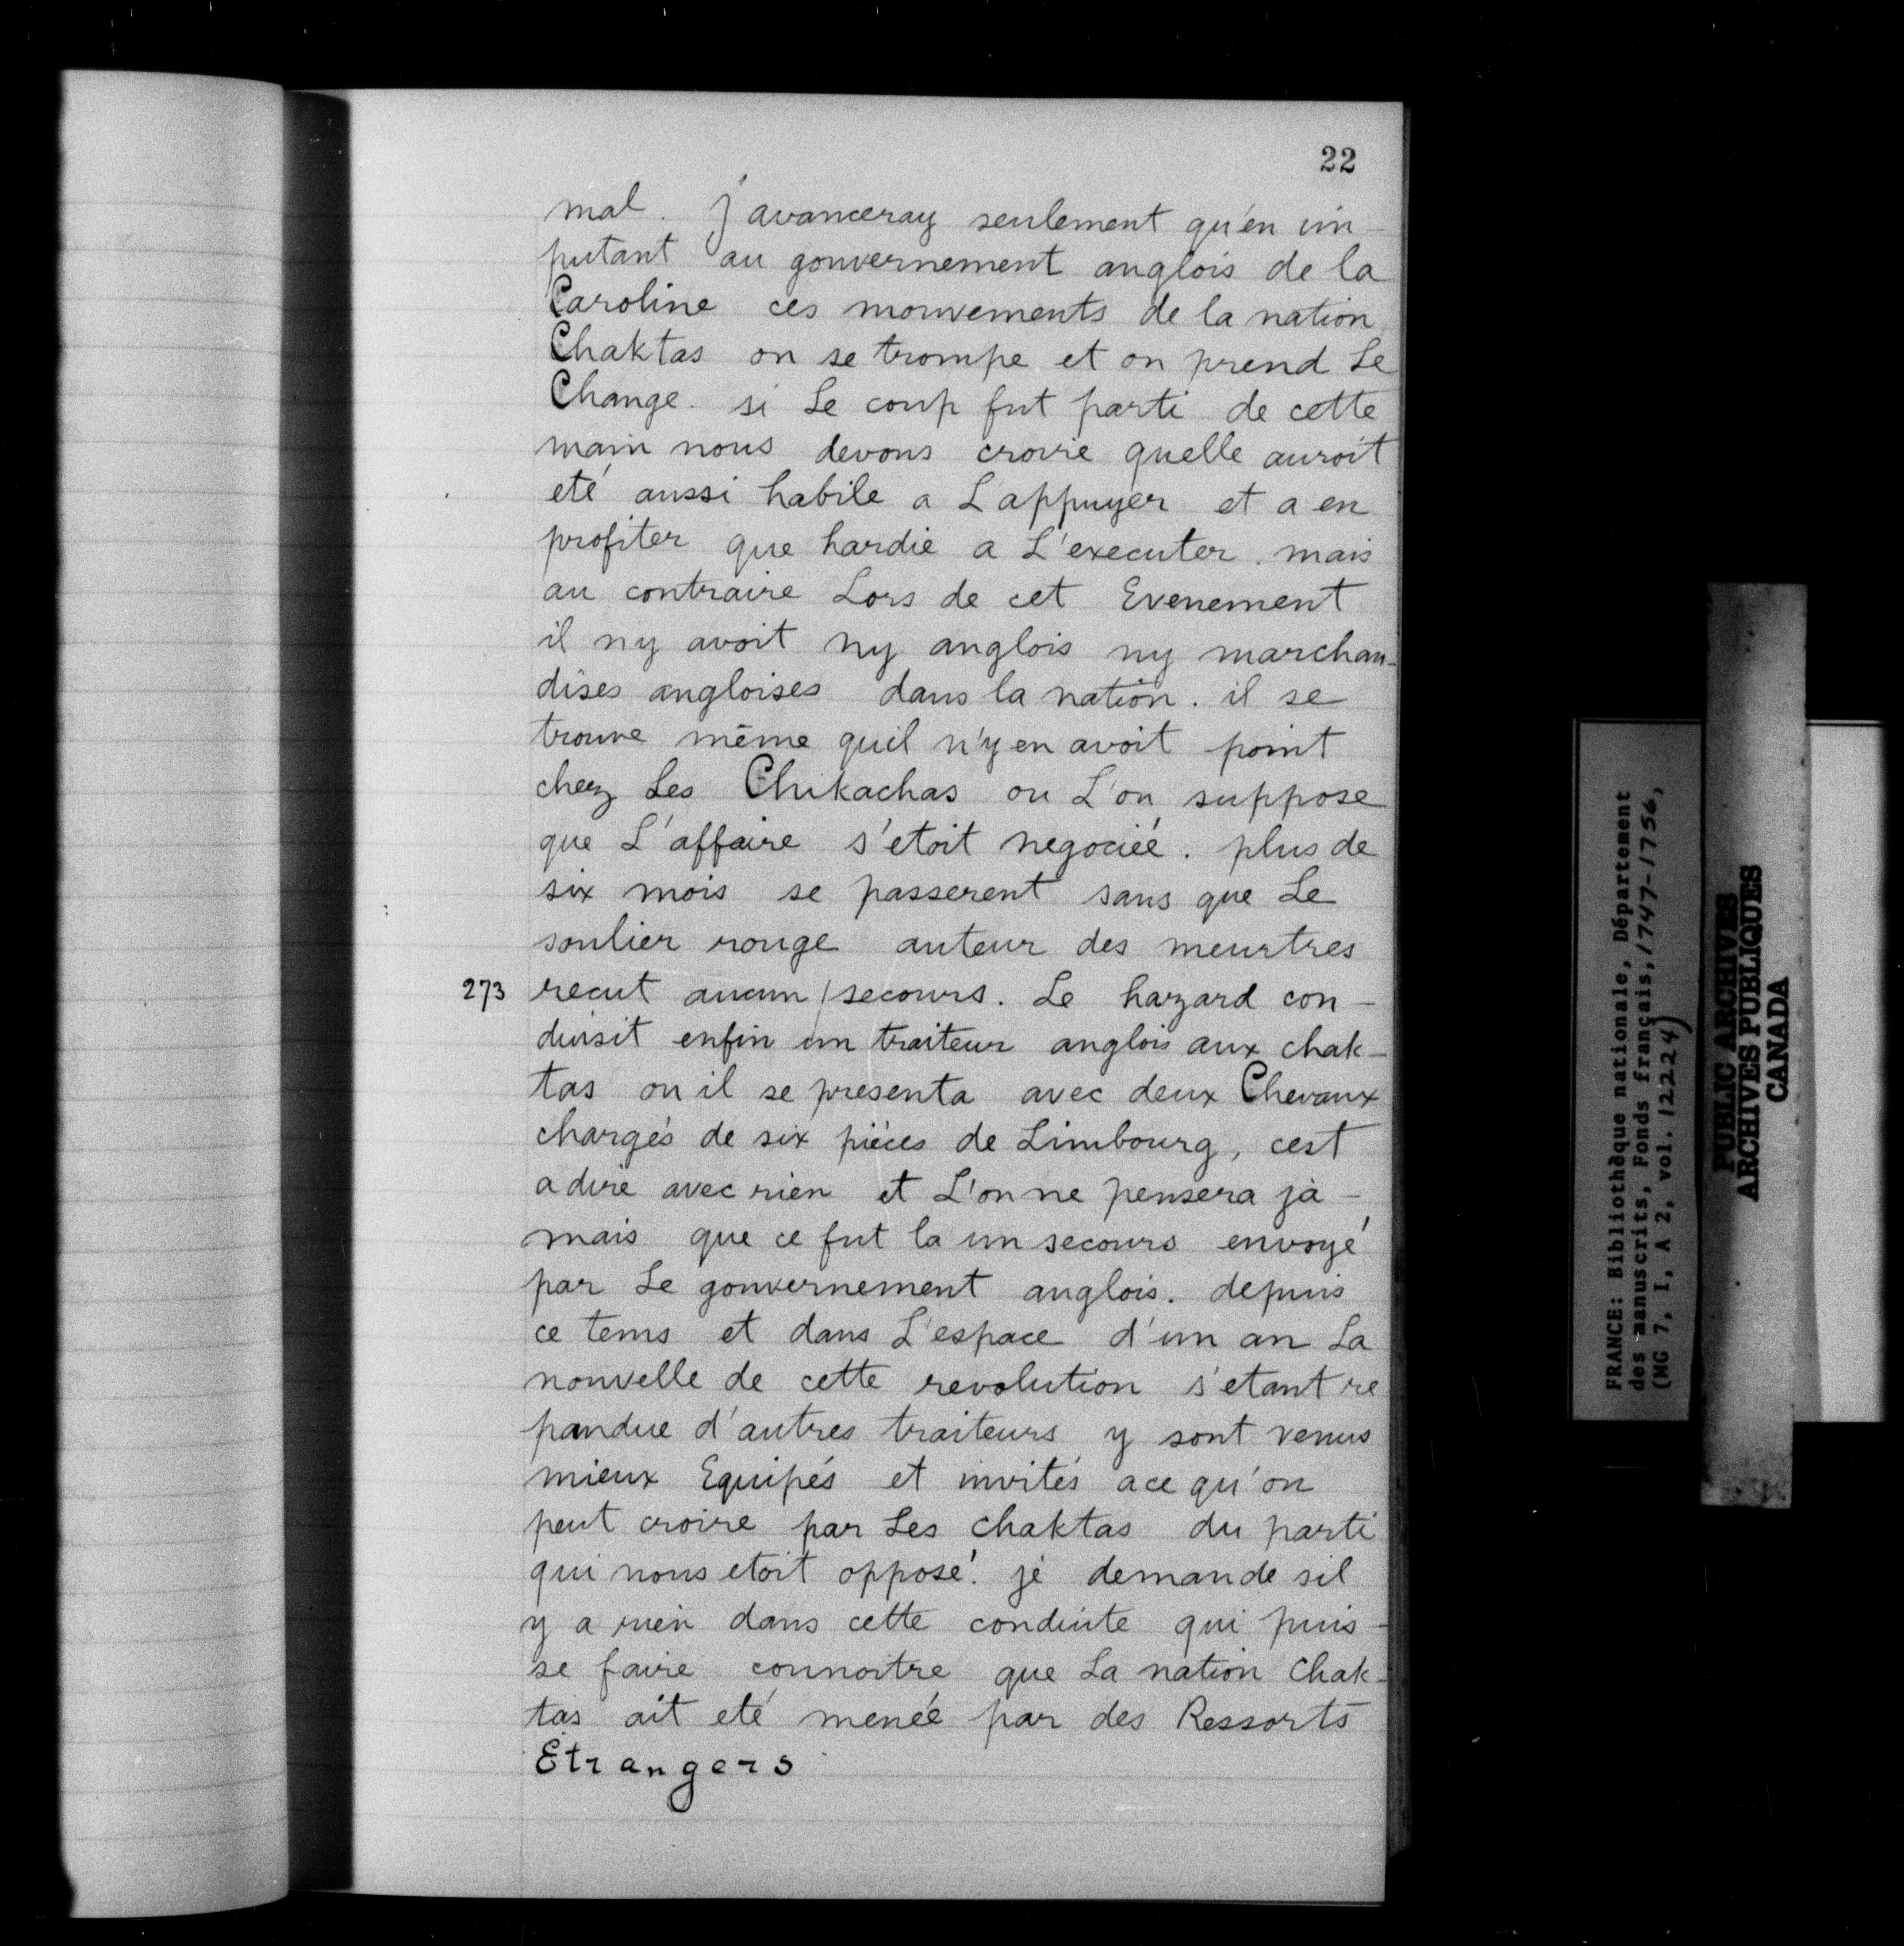 22
mal. j'avanceray seulement qu'en im-
putant au gouvernement anglois de la
Caroline ces mouvements de la nation
Chaktas on se trompe et on prend Le
Change. si Le coup fut parti de cette
main nous devons croire quelle auroit
eté aussi habile a L'appuyer et a en
profiter que hardie a L'executer. mais
au contraire Lors de cet Evenement
il ny avoit ny anglois ny marchan-
dises angloises dans la nation. il se
trouve même quil n'y en avoit point
chez Les Chikachas ou L'on suppose
que L'affaire s'etoit negociée. plus de
six mois se passerent sans que Le
soulier rouge auteur des meurtres
273 recut aucun / secours. Le hazard con-
duisit enfin un traiteur anglois aux chak-
tas ou il se presenta avec deux Chevaux
chargés de six pièces de Limbourg, cest
a dire avec rien et L'on ne pensera ja-
mais que ce fut la un secours envoyé
par Le gouvernement anglois. depuis
ce tems et dans L'espace d'un an La
nouvelle de cette revolution s'etant re
pandue d'autres traiteurs y sont venus
mieux Equipés et invités a ce qu'on
peut croire par Les chaktas du parti
qui nous etoit opposé. je demande sil
y a rien dans cette conduite qui puis-
se faire connoitre que La nation Chak-
tas ait eté menée par des Ressorts
Etrangers
FRANCE: Bibliothèque nationale, Département
des manuscrits, Fonds français, 1747-1756,
(MG 7, I, A 2, vol. 12224)
PUBLIC ARCHIVES
ARCHIVES PUBLIQUES
CANADA